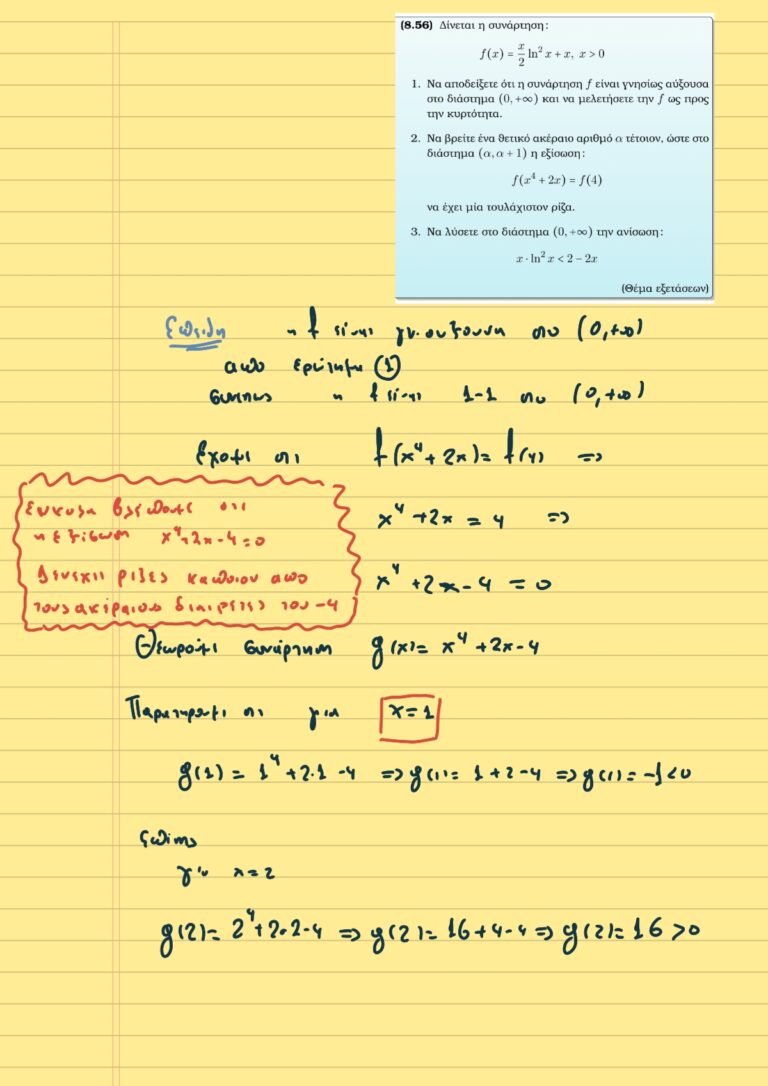 (8.56) Δίνεται η συνάρτηση:
f(x) = x/2 ln² x + x, x > 0
1. Να αποδείξετε ότι η συνάρτηση f είναι γνησίως αύξουσα
στο διάστημα (0, +∞) και να μελετήσετε την f ως προς
την κυρτότητα.
2. Να βρείτε ένα θετικό ακέραιο αριθμό α τέτοιον, ώστε στο
διάστημα (α, α + 1) η εξίσωση:
f(x⁴ + 2x) = f(4)
να έχει μία τουλάχιστον ρίζα.
3. Να λύσετε στο διάστημα (0, +∞) την ανίσωση:
x · ln² x < 2 − 2x
(Θέμα εξετάσεων)
Επειδη η f είναι γν. αυξουσα στο (0, +∞)
απο ερώτημα (1)
συνεπως η f είναι 1-1 στο (0, +∞)
Εχουμε οτι f(x⁴ + 2x) = f(4) =>
x⁴ + 2x = 4 =>
x⁴ + 2x - 4 = 0
Ευκολα βλεπουμε οτι
η εξίσωση x⁴+2x-4=0
Δεν εχει ριζες καποιον απο
τους ακέραιους διαιρετες του -4
Θεωρουμε συνάρτηση g(x) = x⁴ + 2x - 4
Παρατηρουμε οτι για x = 1
g(1) = 1⁴ + 2·1 - 4 => g(1) = 1 + 2 - 4 => g(1) = -1 < 0
επίσης
για x = 2
g(2) = 2⁴ + 2·2 - 4 => g(2) = 16 + 4 - 4 => g(2) = 16 > 0